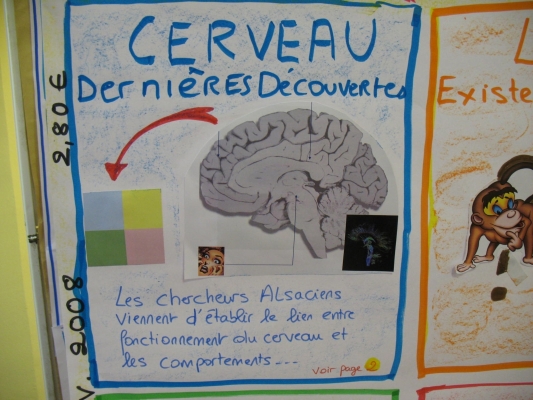 CERVEAU
DERNIÈRES DÉCOUVERTES
Les chercheurs Alsaciens
viennent d'établir le lien entre
fonctionnement du cerveau et
les comportements...
voir page 2
2,80 €
V. 2008
L
Existe